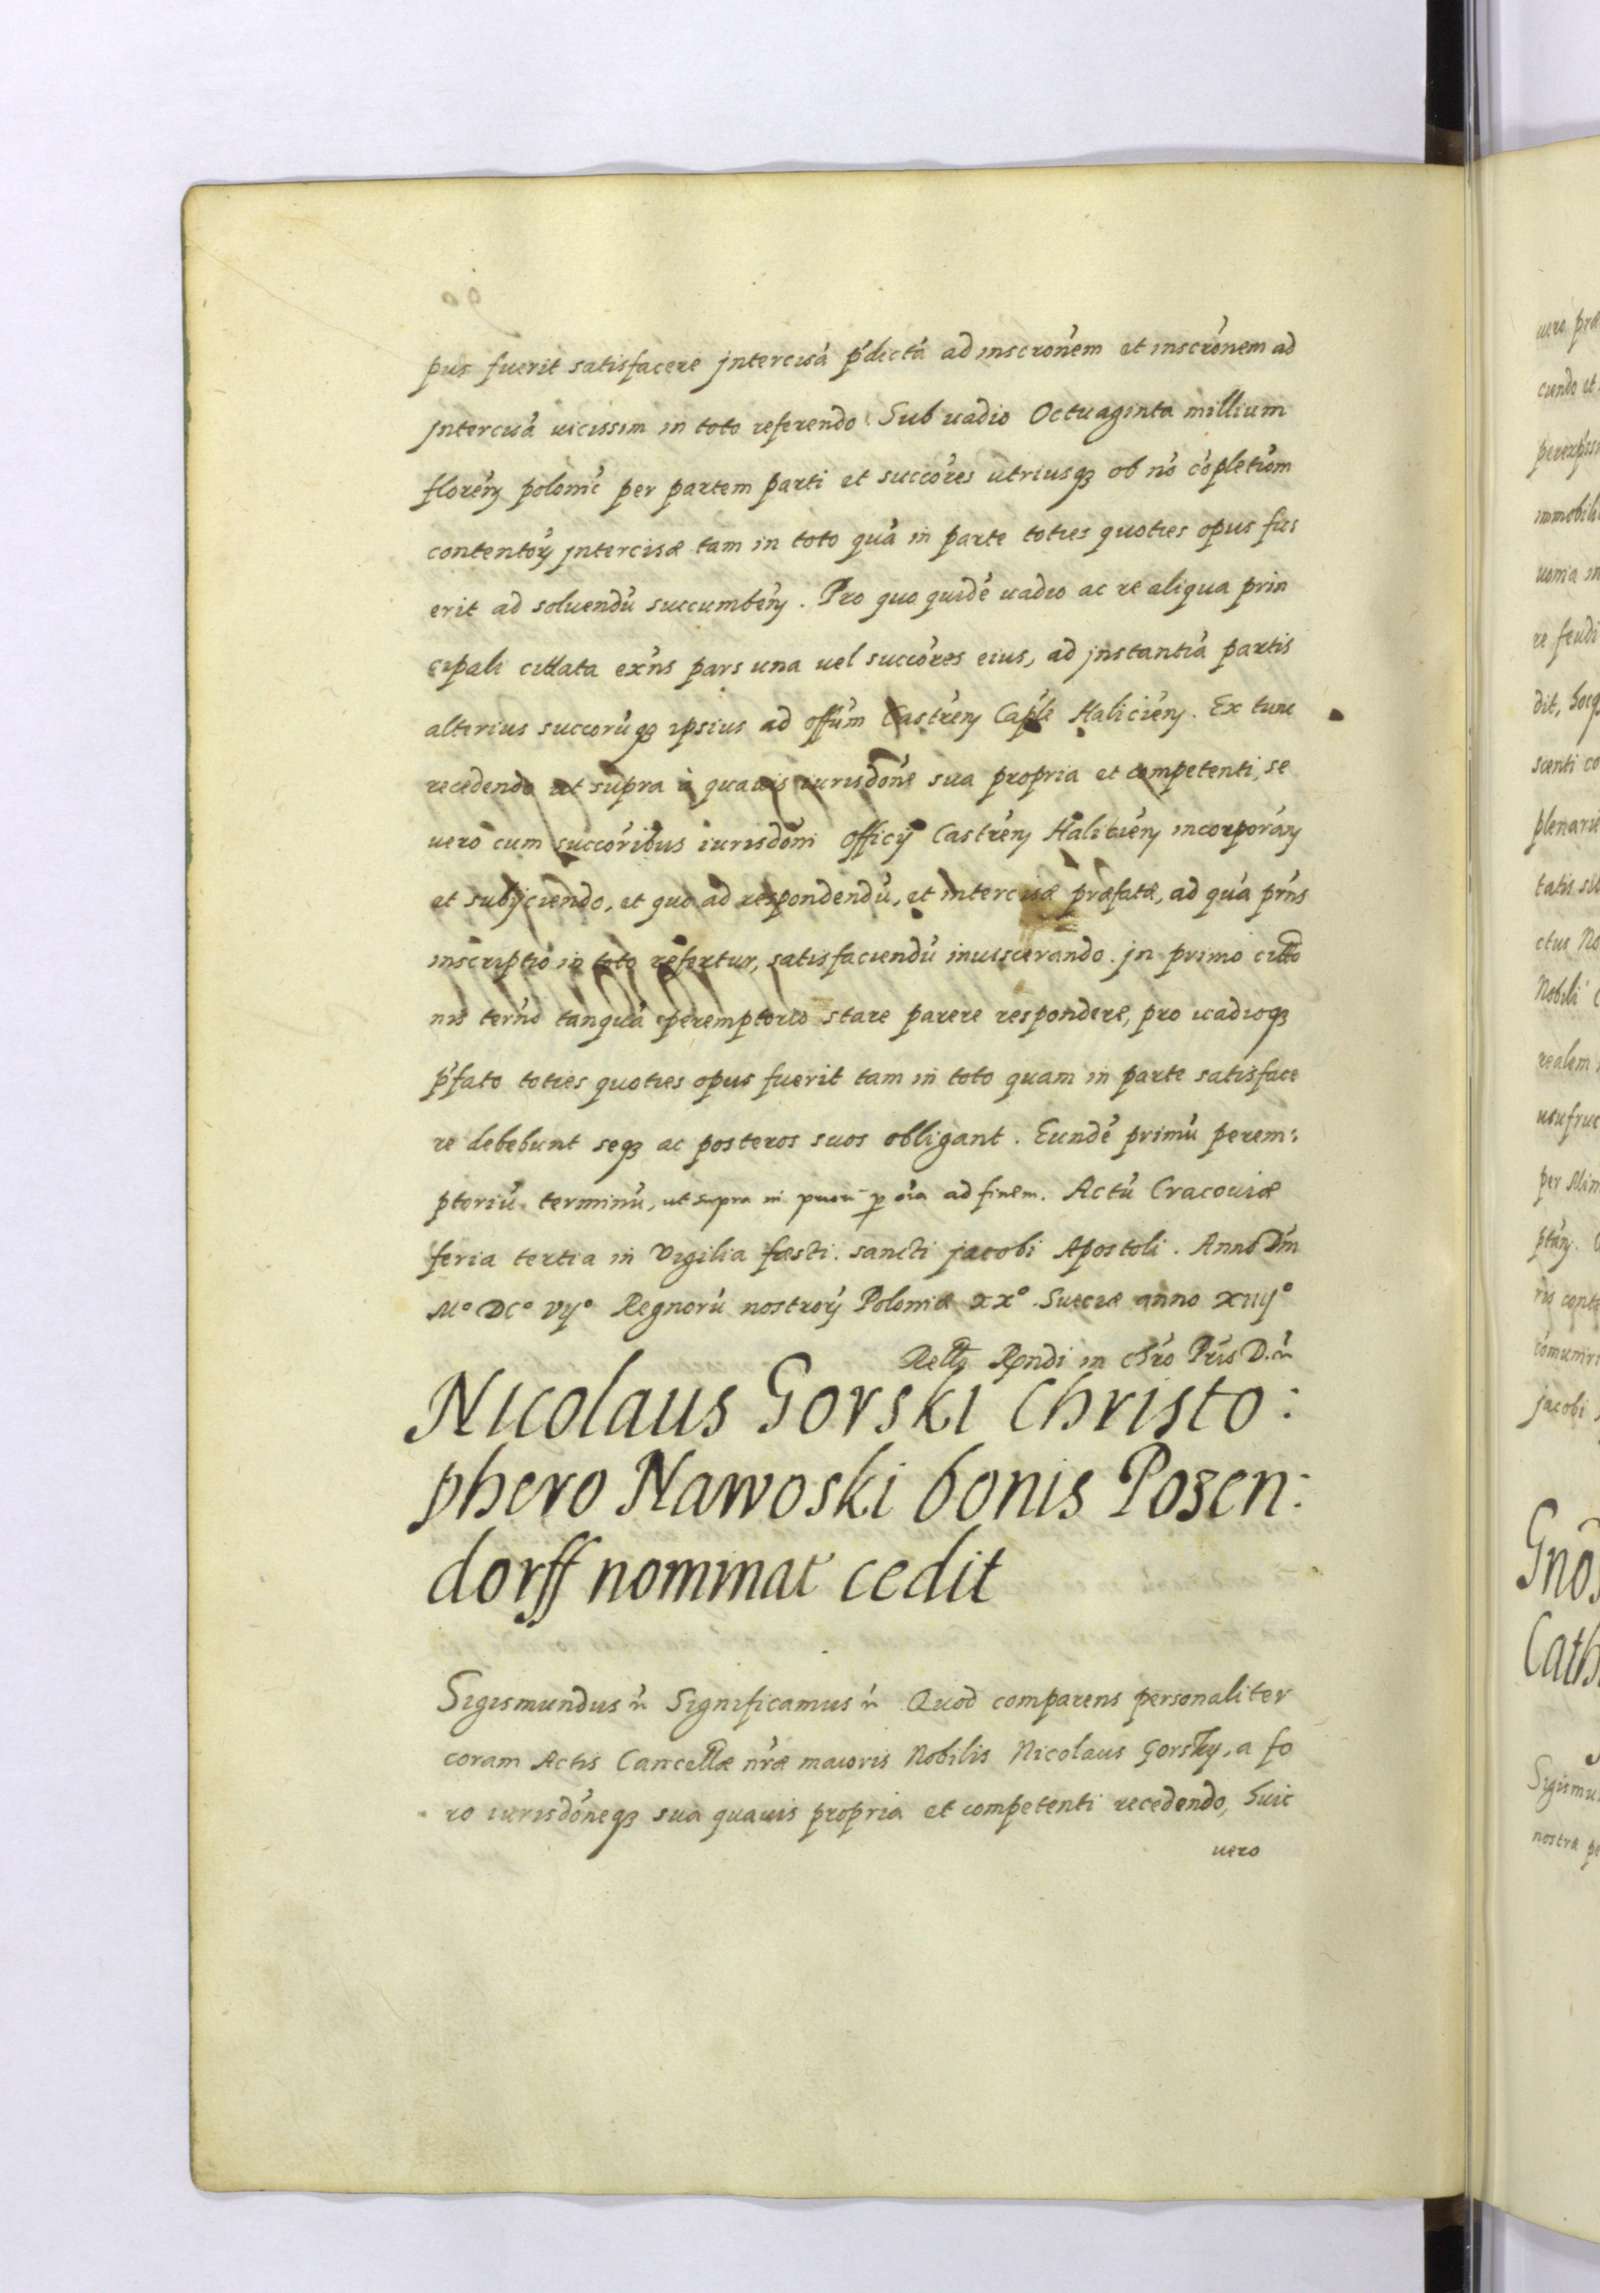 pus fuerit satisfacere jntercisá ṕdictá ad inscrońem et inscrońem ad
jntercisá uicissim in toto referendo Sub uadio Octuaginta millium
floreń polonić per partem parti et succóres utriusqȝ ob nó cópletióm
contentorý jntercisæ tam in toto quá in parte toties quoties opus fu:
erit ad soluendú succumbeń. Pro quo quidé uadio ac re aliqua prin
cipali cittata exńs pars una uel succóres eius, ad jnstantiá partis
alterius succorúqȝ ipsius ad offúm Castreń Caple Halicień. Ex tunc
recedendo ut supra á quauis iurisdońe sua propria et competenti, se
uero cum succóribus iurisdońi officij Castreń Halicień incorporań
et subijciendo, et quo ad respondendú, et intercisæ præfatæ, ad quá prńs
inscriptió in toto refertur, satisfaciendú inuiscerando. jn primo citto
nis termó tanquá peremptorio stare parere respondere, pro uadioqȝ
ṕfato toties quoties opus fuerit tam in toto quam in parte satisface
re debebunt seqȝ ac posteros suos obligant. Eundé primú perem:
ptoriú terminú, ut supra in priori p oía ad finem. Actú Cracouiæ
feria tertia in Vigilia fæsti sancti jacobi Apostoli. Anno Dńi
Mº DCº Vijº Regnorú nostrorý Poloniæ xxº. Sueciæ anno xiiijº
Relło Rńdi in Chró Pris D. ń
Nicolaus Gorski Christo:
phero Nawoski bonis Posen:
dorff nominat cedit
Sigismundus ń Significamus ń Quod comparens personaliter
coram Actis Cancellæ nŕæ maioris Nobilis Nicolaus Gorsky, a fo
ro iurisdońeqȝ sua quauis propria et competenti recedendo, huic
uero